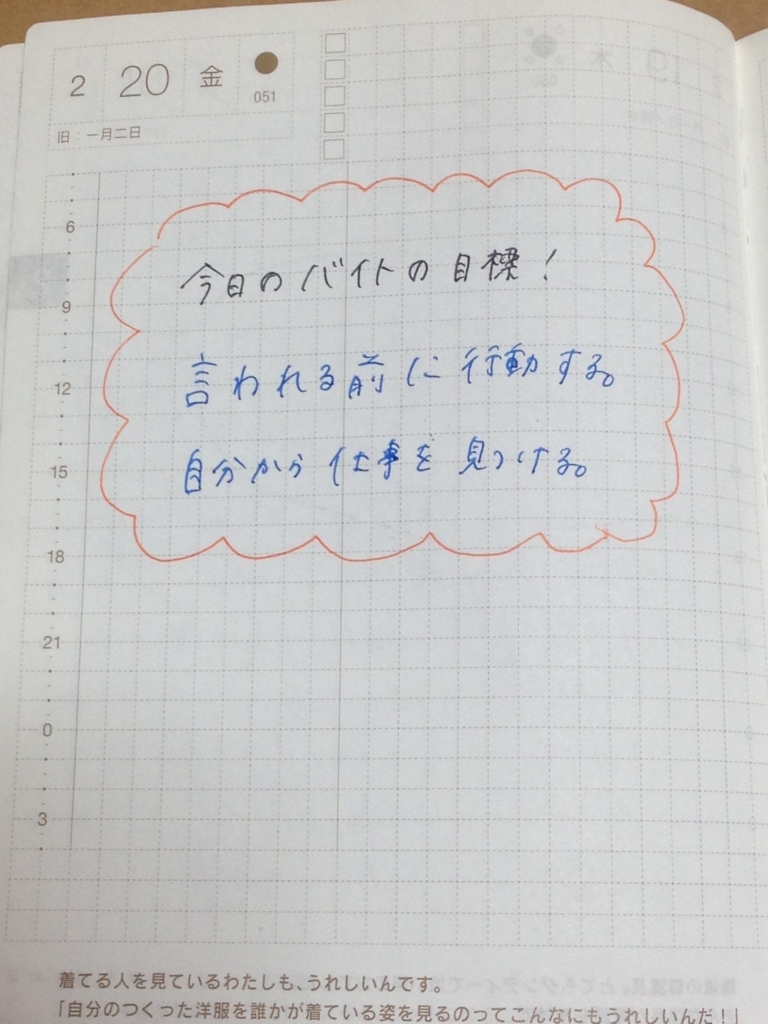 2 20 金
051
旧：一月二日
6
今日のバイトの目標！
9
言われる前に行動する。
12
自分から仕事を見つける。
15
18
21
0
3
着てる人を見ているわたしも、うれしいんです。
「自分のつくった洋服を誰かが着ている姿を見るのってこんなにもうれしいんだ！」